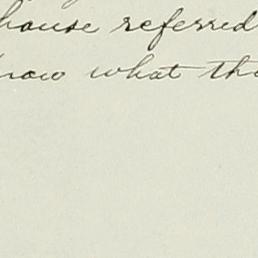 house referred
know what the